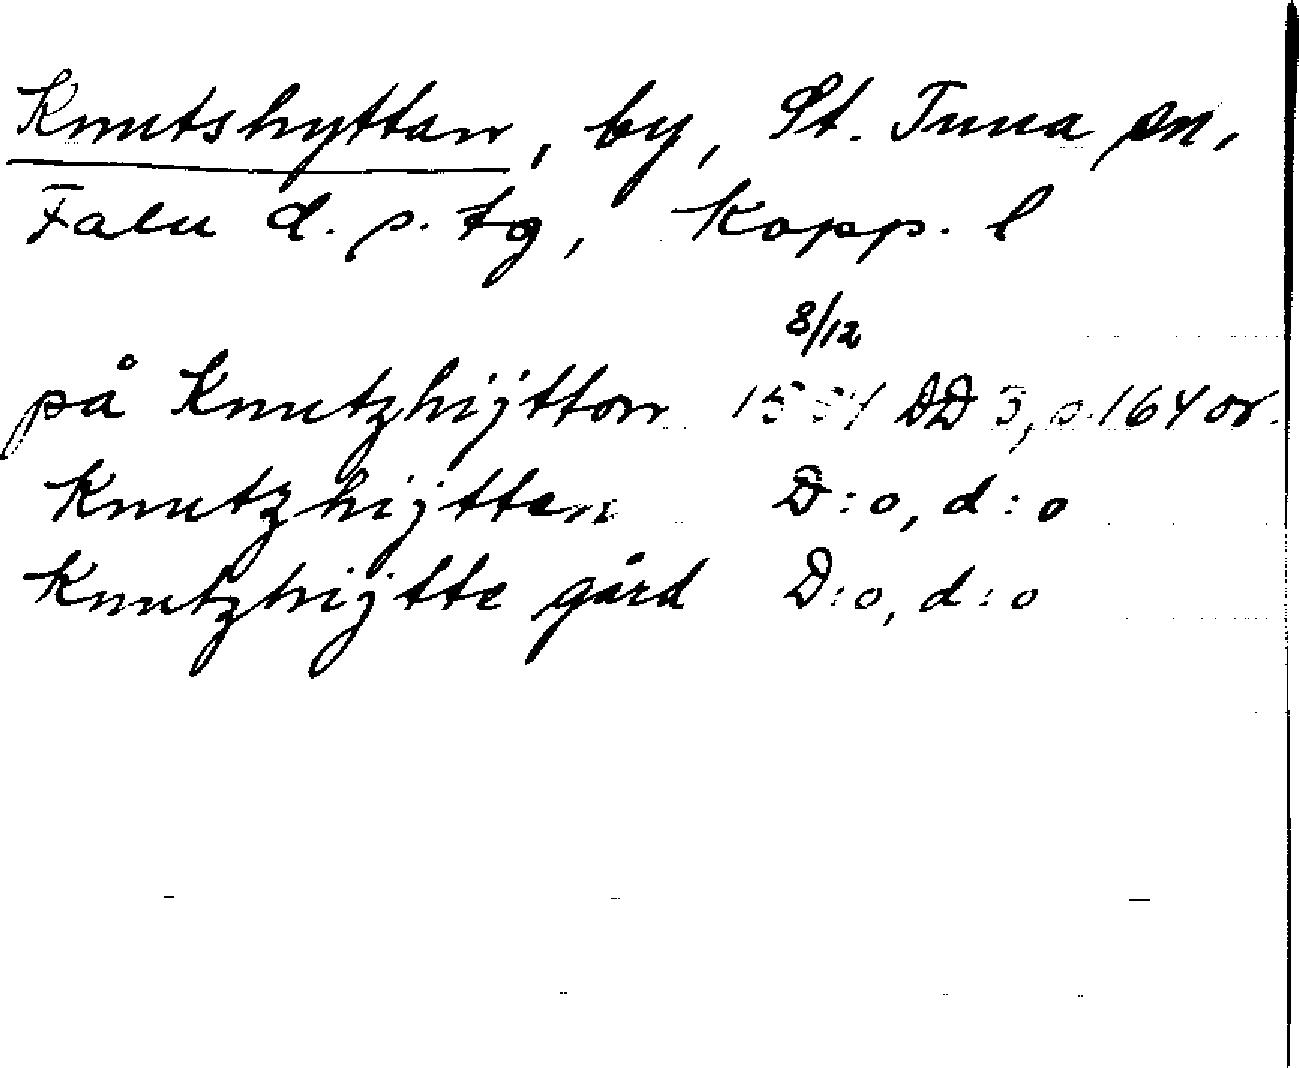 Knutshyttan, by, St. Tuna sn,
Falu d. s. tg, Kopp. l
8/12
på Knutzhijtton 1554 DD 3, s. 164 or.
Knutzhijtten D:o, d:o
Knutzhijtte gård D:o, d:o